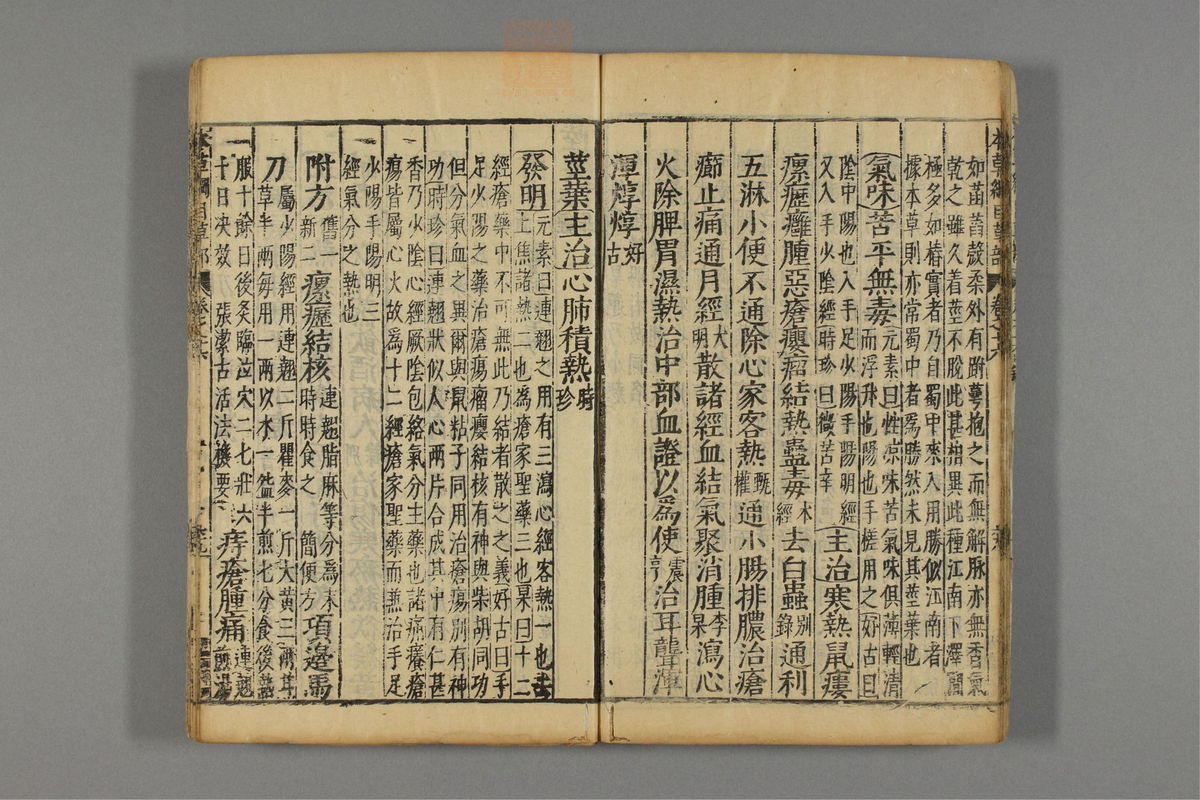 如菡萏殼柔外有跗蕚抱之而無解脉亦無香氣
乾之雖久着莖不脫此甚相異此種江南下澤間
極多如椿實者乃自蜀中來入用勝似江南者
據本草則亦常蜀中者為勝然未見其莖葉也
氣味苦平無毒
元素曰性凉味苦氣味俱薄輕清
而浮升也陽也手搓用之好古曰
陰中陽也入手足少陽手陽明經
又入手少陰經時珍曰微苦辛
主治寒熱鼠瘻
瘰癧癰腫惡瘡癭瘤結熱蠱毒本經去白蟲別錄通利
五淋小便不通除心家客熱甄權通小腸排膿治瘡
癤止痛通月經大明散諸經血結氣聚消腫李杲瀉心
火除脾胃濕熱治中部血證以為使震亨治耳聾渾
渾焞焞好古
莖葉主治心肺積熱時珍
發明
元素曰連翹之用有三瀉心經客熱一也去
上焦諸熱二也為瘡家聖藥三也杲曰十二
經瘡藥中不可無此乃結者散之之義好古曰手
足少陽之藥治瘡瘍瘤癭結核有神與柴胡同功
但分氣血之異爾與鼠粘子同用治瘡瘍別有神
功時珍曰連翹狀似人心兩片合成其中有仁甚
香乃少陰心經厥陰包絡氣分主藥也諸痛癢瘡
瘍皆屬心火故為十二經瘡家聖藥而兼治手足
少陽手陽明三
經氣分之熱也
附方舊一新二瘰癧結核
連翹脂麻等分為末
時時食之 簡便方
項邊馬
刀
屬少陽經用連翹二斤瞿麥一斤大黃三兩甘
草半兩每用一兩以水一盌半煎七分食後熱
服十餘日後灸臨泣穴二七壯六
十日決效 張潔古活法機要
痔瘡腫痛
連翹
煎湯
本草綱目草部
卷之十六